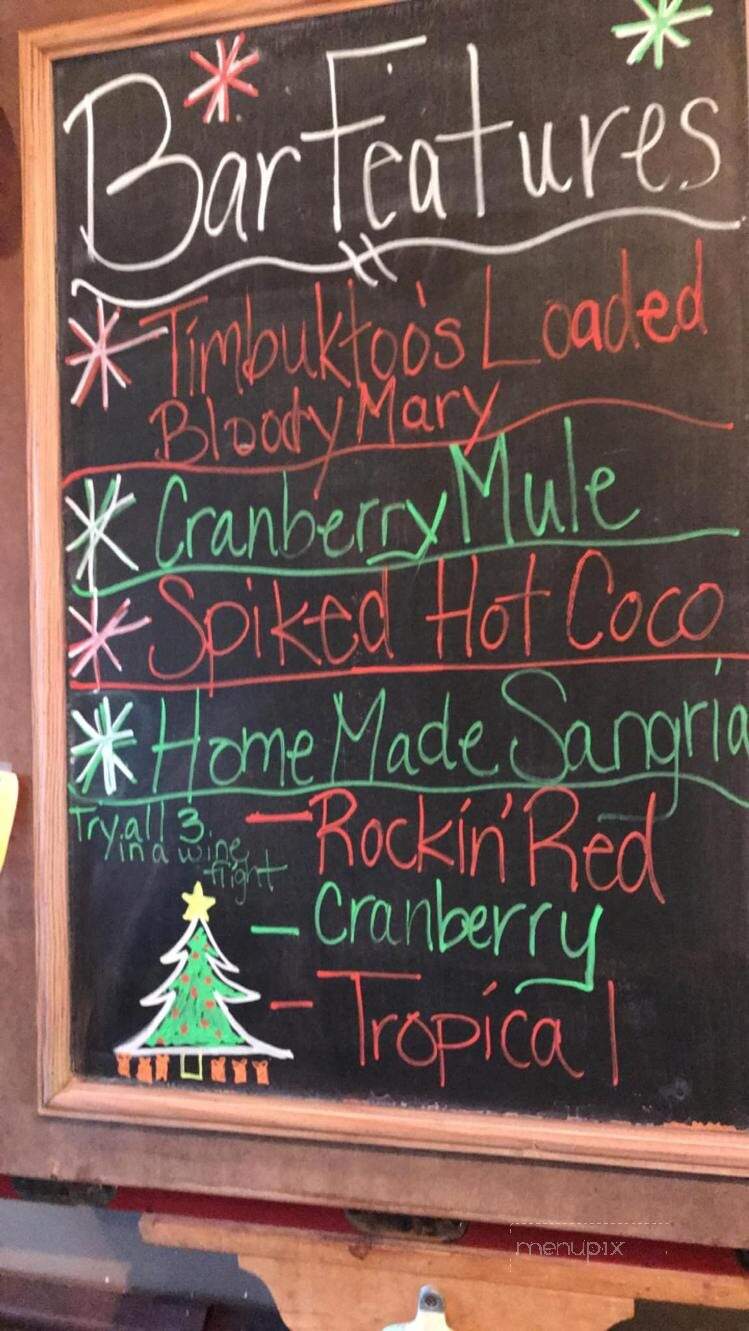 Bar Features
Timbuktoo's Loaded
Bloody Mary
Cranberry Mule
Spiked Hot Coco
Home Made Sangria
Try all 3
in a wine
flight
- Rockin' Red
- Cranberry
- Tropical
menupix